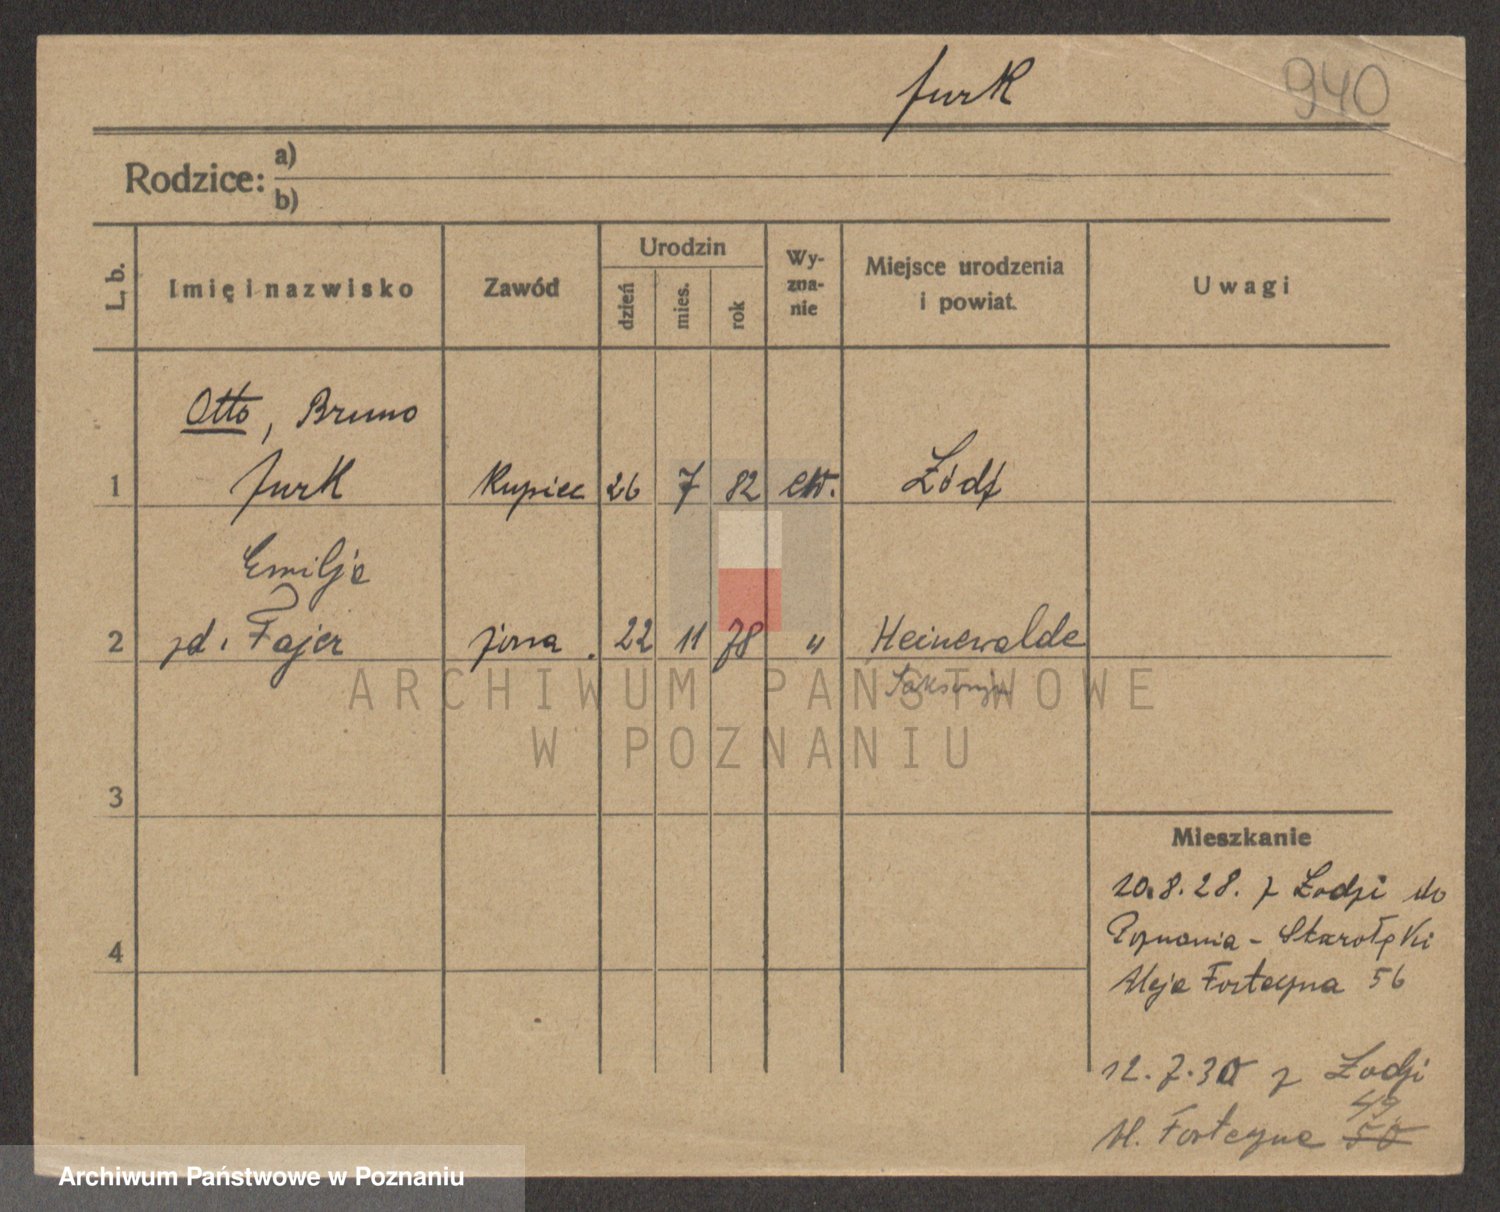 Jurk
940
Rodzice: a)
b)
L. b.
Imię i nazwisko
Zawód
Urodzin
dzień
mies.
rok
Wy-
zna-
nie
Miejsce urodzenia
i powiat.
Uwagi
Otto, Bruno
1 Jurk Kupiec 26 7 82 ew. Łódź
Emilja
2 zd. Fajer żona. 22 11 78 " Heinewalde
Saksonja
ARCHIWUM PAŃSTWOWE
W POZNANIU
3
Mieszkanie
20.8.28. z Łodzi do
Poznania - Starołęki
4
Aleje Forteczna 56
12.7.30 z Łodzi
49
Al. Forteczne 50
Archiwum Państwowe w Poznaniu